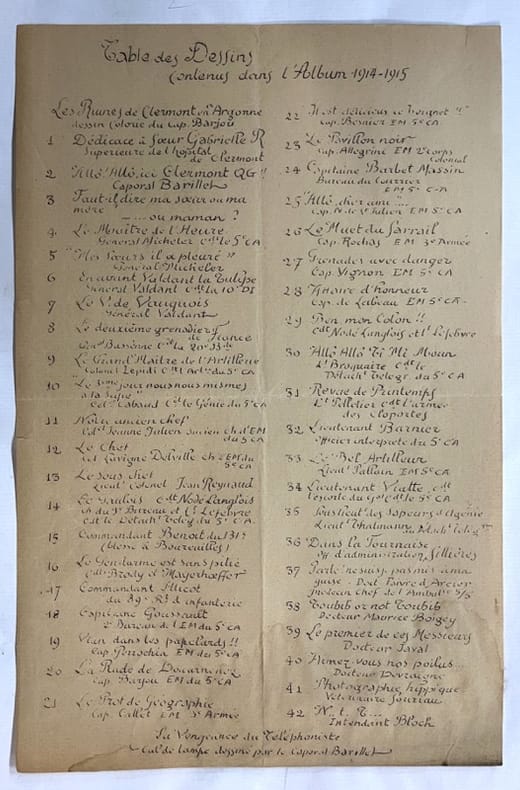 Table des Dessins
Contenus dans l'Album 1914-1915
Les Ruines de Clermont en Argonne
dessin Colorié du Cap. Barjou
1 Dédicace à Sœur Gabrielle R
Supérieure de l'hopital
de Clermont
2 Allo! Allo, ici Clermont QG !!
Caporal Barillet
3 Faut-il dire ma sœur ou ma
mère
—....ou maman ?
4 Le Maître de l'Heure
Général Micheler Cdt le 5e CA
5 "Mes Sœurs il a pleuré"
Général Micheler
6 En avant Valdant la Tulipe
Général Valdant Cdt la 10e DI
7 Le V. de Vauquois
Général Valdant
8 Le deuxième grenadier
de France
9 Le Grand Maître de l'Artillerie
Colonel Lepidi Cdt l'Art du 5e CA
10 "Le jour nous nous mîmes
à la Sape"
Col. Cabaud Cdt le Génie du 5e CA
11 Notre ancien chef
Cdt Jeanne Julien ancien ch d'EM
du 5 CA
12 Le Chef
Col Lavigne Delville ch d'EM du
5e CA
13 Le sous chef
Lieut Colonel Jean Reynaud
14 Le Gaulois Cdt Node Langlois
ch du 3e Bureau et Lt Lefebvre
Cdt le Détacht Teleg du 5e CA.
15 Commandant Benoit du 131e
(blessé à Boureuilles)
16 Le Gendarme est sans pitié
Cdts Brody et Mayerhoffer
17 Commandant
du 89e Rt d'infanterie
18 Capitaine Goussault
2e Bureau de l'EM du 5e CA
19 Vlan dans les papelards !!
Cap. Perrochia EM du 5e CA
20 La Rude de Douarnenez
Cap. Barjou EM du 5e CA
21 Le Prof de Géographie
Cap. Callet EM 3e Armée
22 Il est délicieux ce beignet !!
Cap. Besnier EM 5e CA
23 Le Pavillon noir
Cap. Allegrini EM 2e corps
Colonial
24 Capitaine Barbet Massin
Bureau du Courrier
EM 5e CA
25 "Allo, cher ami"...
Cap. N. de St Julien EM 5e CA
26 Le Muet du Sarrail
Cap. Rochas EM 3e Armée
27 Grenades avec danger
Cap. Vignon EM 5e CA
28 d'honneur
Cap. de Labeau EM 5e CA.
29 Ben mon Colon !!
Cdt Node Langlois et Lt Lefebvre
30 Allo Allo Ti Mi Moun
Lt Broquaire Cdt le
Détacht Telegr. du 5e CA
31 Revue de Printemps
Lt Pelletier Cdt l'armée
des Cloportes
32 Lieutenant Barnier
officier interprète du 5e CA
33 Le Bel Artilleur
Lieut Pallain EM 5e CA
34 Lieutenant Viatte, Cdt
l'escorte du Gal Cdt le 5e CA
35 Sous lieut des sapeurs d'Agénie
Lieut Thalmann du Détach. Teleg.
36 Dans la Tournaise
off d'administration Sillières
37 Parle ne suis pas mis à ma
guise. Doct Faivre d'Arcier
Médecin Chef de l'Ambul. 5/5
38 Toubib or not Toubib
Docteur Maurice Boigey
39 Le premier de ces Messieurs
Docteur Javal
40 Aimez-vous nos poilus...
Docteur
41 Photographie hippique
Vétérinaire
42 N. t. T...
Intendant Bloch
La Vengeance du Téléphoniste
Cul de lampe dessiné par le Caporal Barillet